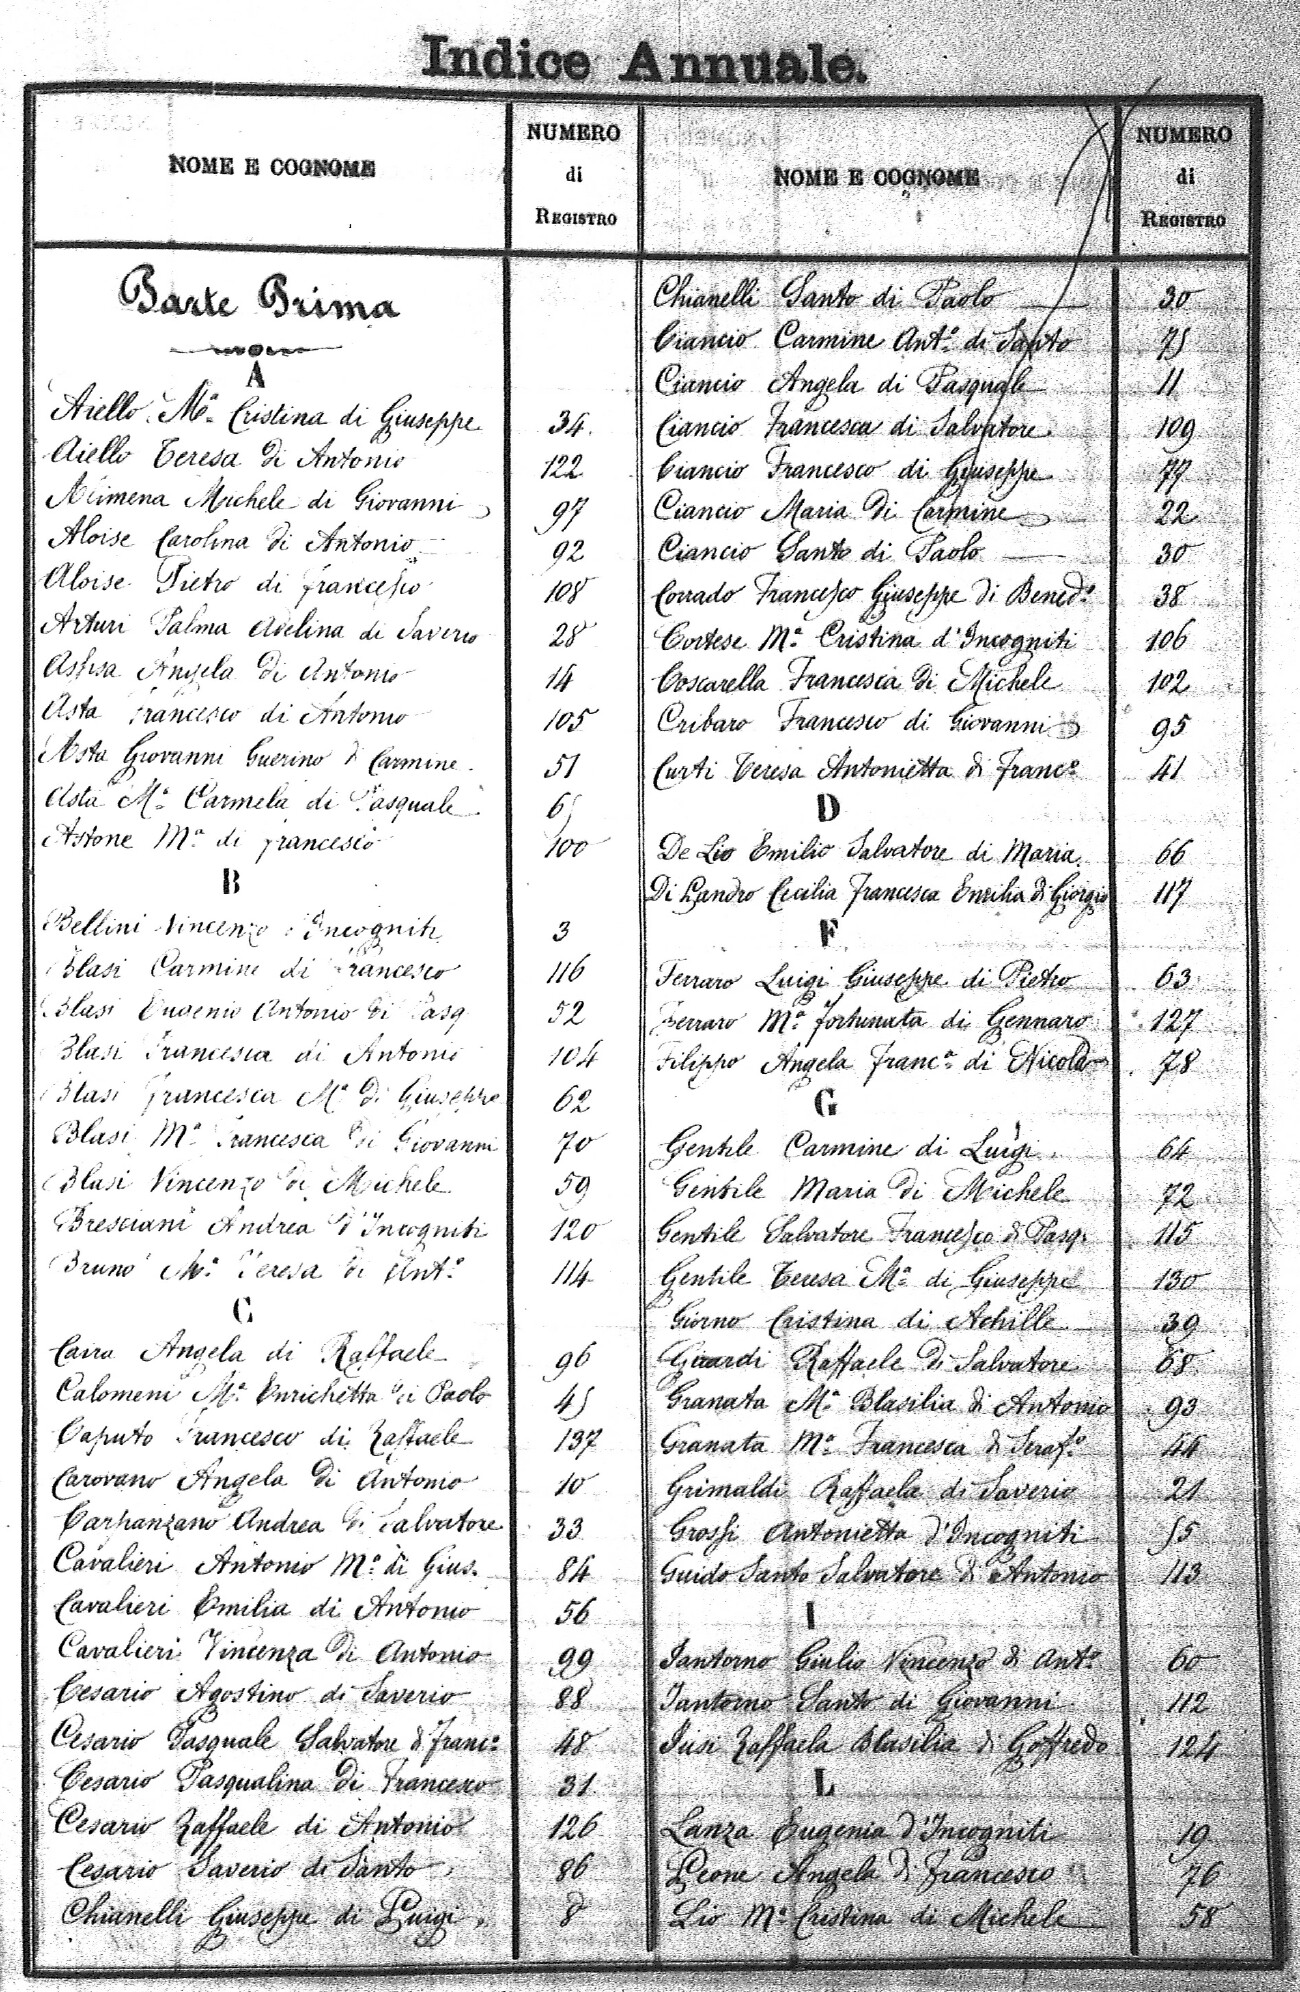 Indice Annuale.
NOME E COGNOME
NUMERO
di
REGISTRO
Parte Prima
A
Aiello Mª Cristina di Giuseppe 34.
Aiello Teresa di Antonio 122
Alimena Michele di Giovanni 97
Aloise Carolina di Antonio 92
Aloise Pietro di Francesco 108
Arturi Palma Adelina di Saverio 28
Assisa Angela di Antonio 14
Asta Francesco di Antonio 105
Asta Giovanni Guerino di Carmine 51
Asta Mª Carmela di Pasquale
Astone Mª di Francesco 100
B
Bellini Vincenzo Incogniti 3
Blasi Carmine di Francesco 116
Blasi Eugenio Antonio di Pasq 52
Blasi Francesca di Antonio 104
Blasi Francesca Mª di Giuseppe 62
Blasi Mª Francesca di Giovanni 70
Blasi Vincenzo di Michele 59
Bresciani Andrea d'Incogniti 120
Bruno Mª Teresa di Antº 114
C
Angela di Raffaele 96
Calomeni Mª Enrichetta di Paolo 45
Caputo Francesco di Raffaele 137
Carovano Angela di Antonio 10
Carpanzano Andrea di Salvatore 33
Cavalieri Antonio Mª di Gius. 84
Cavalieri Emilia di Antonio 56
Cavalieri Vincenza di Antonio 99
Cesario Agostino di Saverio 88
Cesario Pasquale Salvatore di Francº 48
Cesario Pasqualina di Francesco 31
Cesario Raffaele di Antonio 126
Cesario Saverio di Santo 86
Chianelli Giuseppe di Luigi 8
NOME E COGNOME
NUMERO
di
REGISTRO
Chianelli Santo di Paolo 30
Ciancio Carmine Antº di Santo 75
Ciancio Angela di Pasquale 11
Ciancio Francesca di Salvatore 109
Ciancio Francesco di Giuseppe 77
Ciancio Maria di Carmine 22
Ciancio Santo di Paolo 30
Corrado Francesco Giuseppe di Benedº 38
Cortese Mª Cristina d'Incogniti 106
Coscarella Francesca di Michele 102
Cribaro Francesco di Giovanni 95
Curti Teresa Antonietta di Francº 41
D
De Lio Emilio Salvatore di Maria 66
Di Landro Cecilia Francesca Emilia di Giorgio 117
F
Ferraro Luigi Giuseppe di Pietro 63
Ferraro Mª Fortunata di Gennaro 127
Filippo Angela Francª di Nicola 78
G
Gentile Carmine di Luigi 64
Gentile Maria di Michele 72
Gentile Salvatore Francesco di Pasq. 115
Gentile Teresa Mª di Giuseppe 130
Giorno Cristina di Achille 39
Girardi Raffaele di Salvatore 68
Granata Mª Blasilia di Antonio 93
Granata Mª Francesca di Serafº 44
Grimaldi Raffaela di Saverio 21
Grossi Antonietta d'Incogniti 55
Guido Santo Salvatore di Antonio 113
I
Iantorno Giulio Vincenzo di Antº 60
Iantorno Santo di Giovanni 112
Iusi Raffaela Blasilia di Goffredo 124
L
Lanza Eugenia d'Incogniti 19
Leone Angela di Francesco 76
Lio Mª Cristina di Michele 58